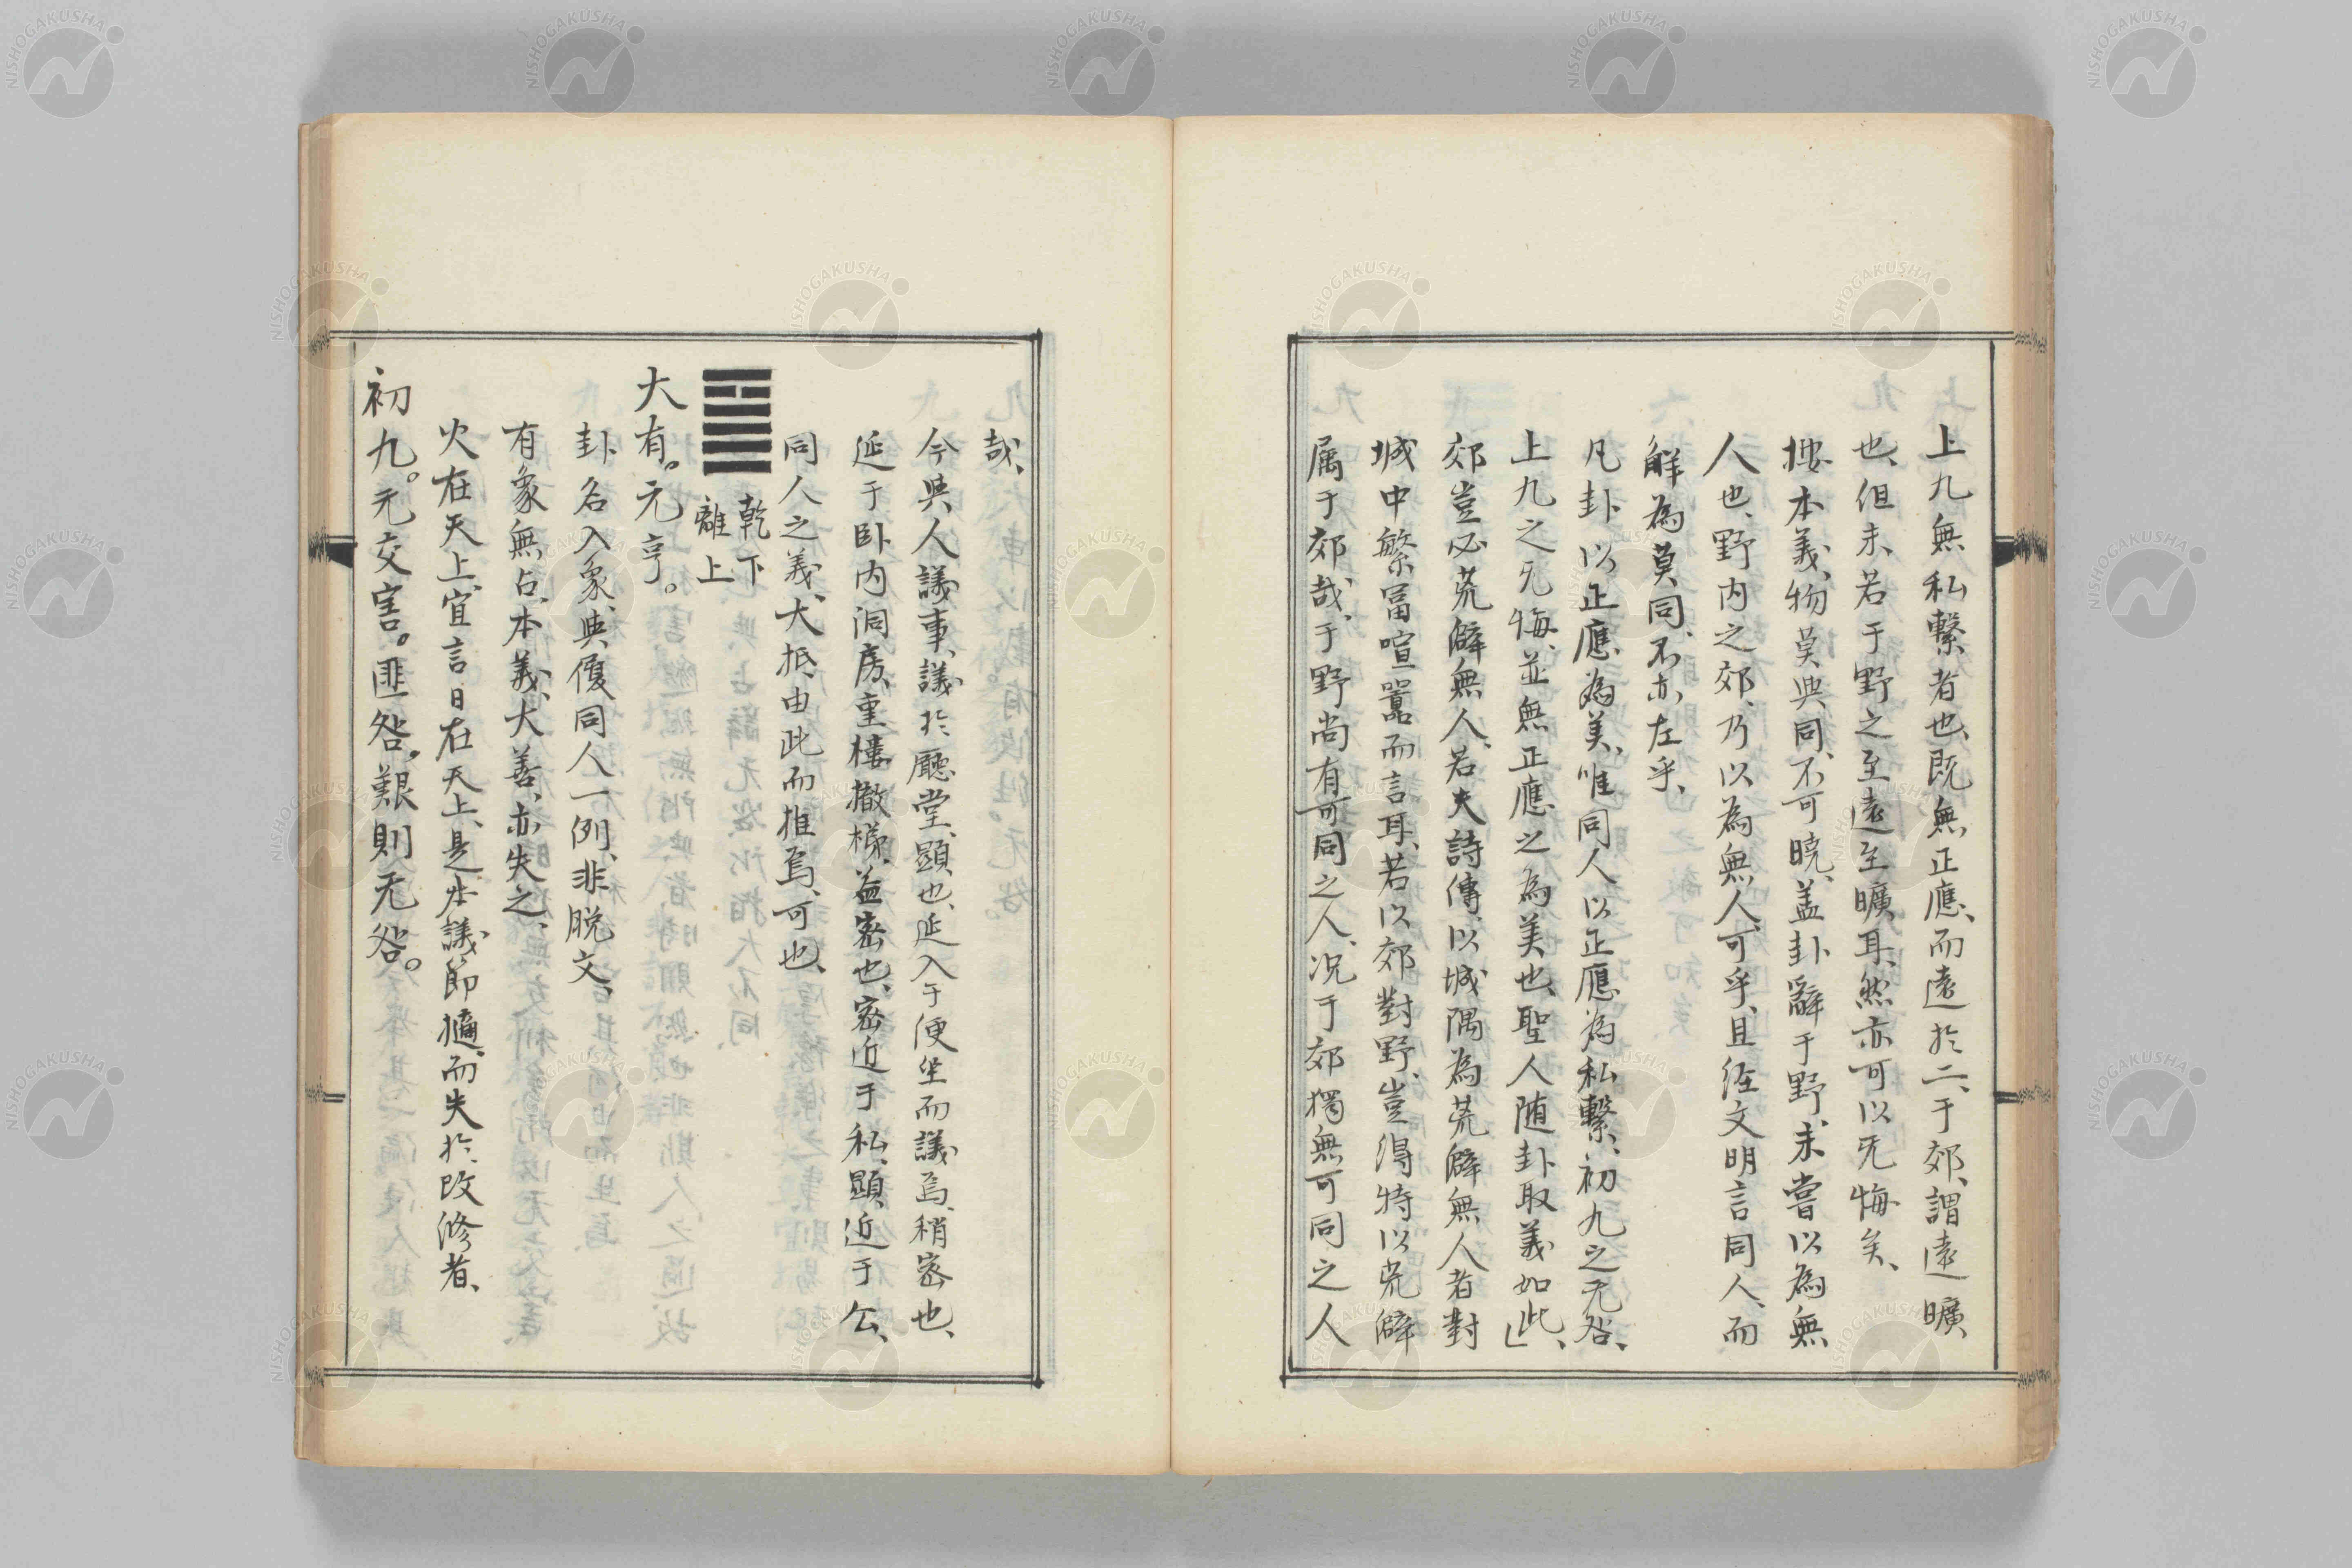 上九無私繫者也、既無正應、而遠於二、于郊、謂遠曠
也、但未若于野之至遠至曠耳、然亦可以无悔矣、
按本義、物莫與同、不可曉、盖卦辭于野、未嘗以為無
人也、野内之郊、乃以為無人、可乎、且經文明言同人、而
解為莫同、不亦左乎、
凡卦以正應為美、唯同人以正應為私繫、初九之无咎、
上九之无悔、並無正應之為美也、聖人随卦取義如此、」
郊豈必荒僻無人、若夫詩傳、以城隅為荒僻無人者、對
城中繁冨喧囂而言耳、若以郊對野、豈得特以荒僻
属于郊哉、于野尚有可同之人、况于郊獨無可同之人
哉、
今與人議事、議於廳堂、顯也、延入于便坐而議焉、稍密也、
延于卧内洞房、重樓撤梯、益密也、密近于私、顯近于公、
同人之義、大抵由此而推焉、可也、
乾下
離上
大有。元亨。
卦名入象、與履同人一例、非脱文、
有象無占、本義、大善、亦失之、
火在天上、宜言日在天上、是本議節擿、而失於改修者、
初九。无交害。匪咎。艱則无咎。
NISHOGAKUSHA